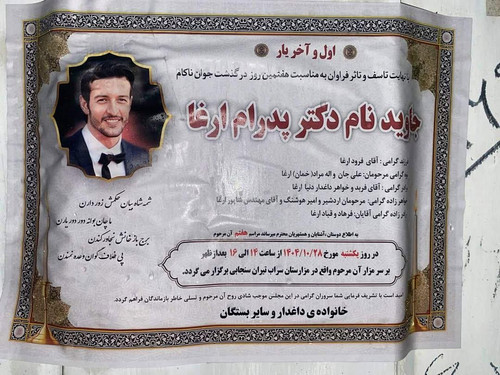 اول و آخر یار
با نهایت تاسف و تاثر فراوان به مناسبت هفتمین روز درگذشت جوان ناکام
جاوید نام دکتر پدرام ارغا
فرزند گرامی : آقای فرود ارغا
نوه گرامی مرحومان: علی جان و اله مراد(خمان) ارغا
برادر گرامی : آقای فرید و خواهر داغدار دنیا ارغا
برادرزاده گرامی: مرحومان اردشیر و امیر هوشنگ و آقای مهندس شاپور ارغا
خواهرزاده گرامی آقایان: فرهاد و قباد ارغا
به اطلاع دوستان،آشنایان و همشهریان محترم میرساند مراسم هفتم آن مرحوم
در روز یکشنبه مورخ ۱۴۰۴/۱۰/۲۸ از ساعت ۱۴ الی ۱۶ بعدازظهر
بر سر مزار آن مرحوم واقع در مزارستان سراب نیران سنجابی برگزار می گردد.
امید است با تشریف فرمایی شما سروران گرامی در این مجلس موجب شادی روح آن مرحوم و تسلی خاطر بازماندگان فراهم گردد.
خانواده ی داغدار و سایر بستگان